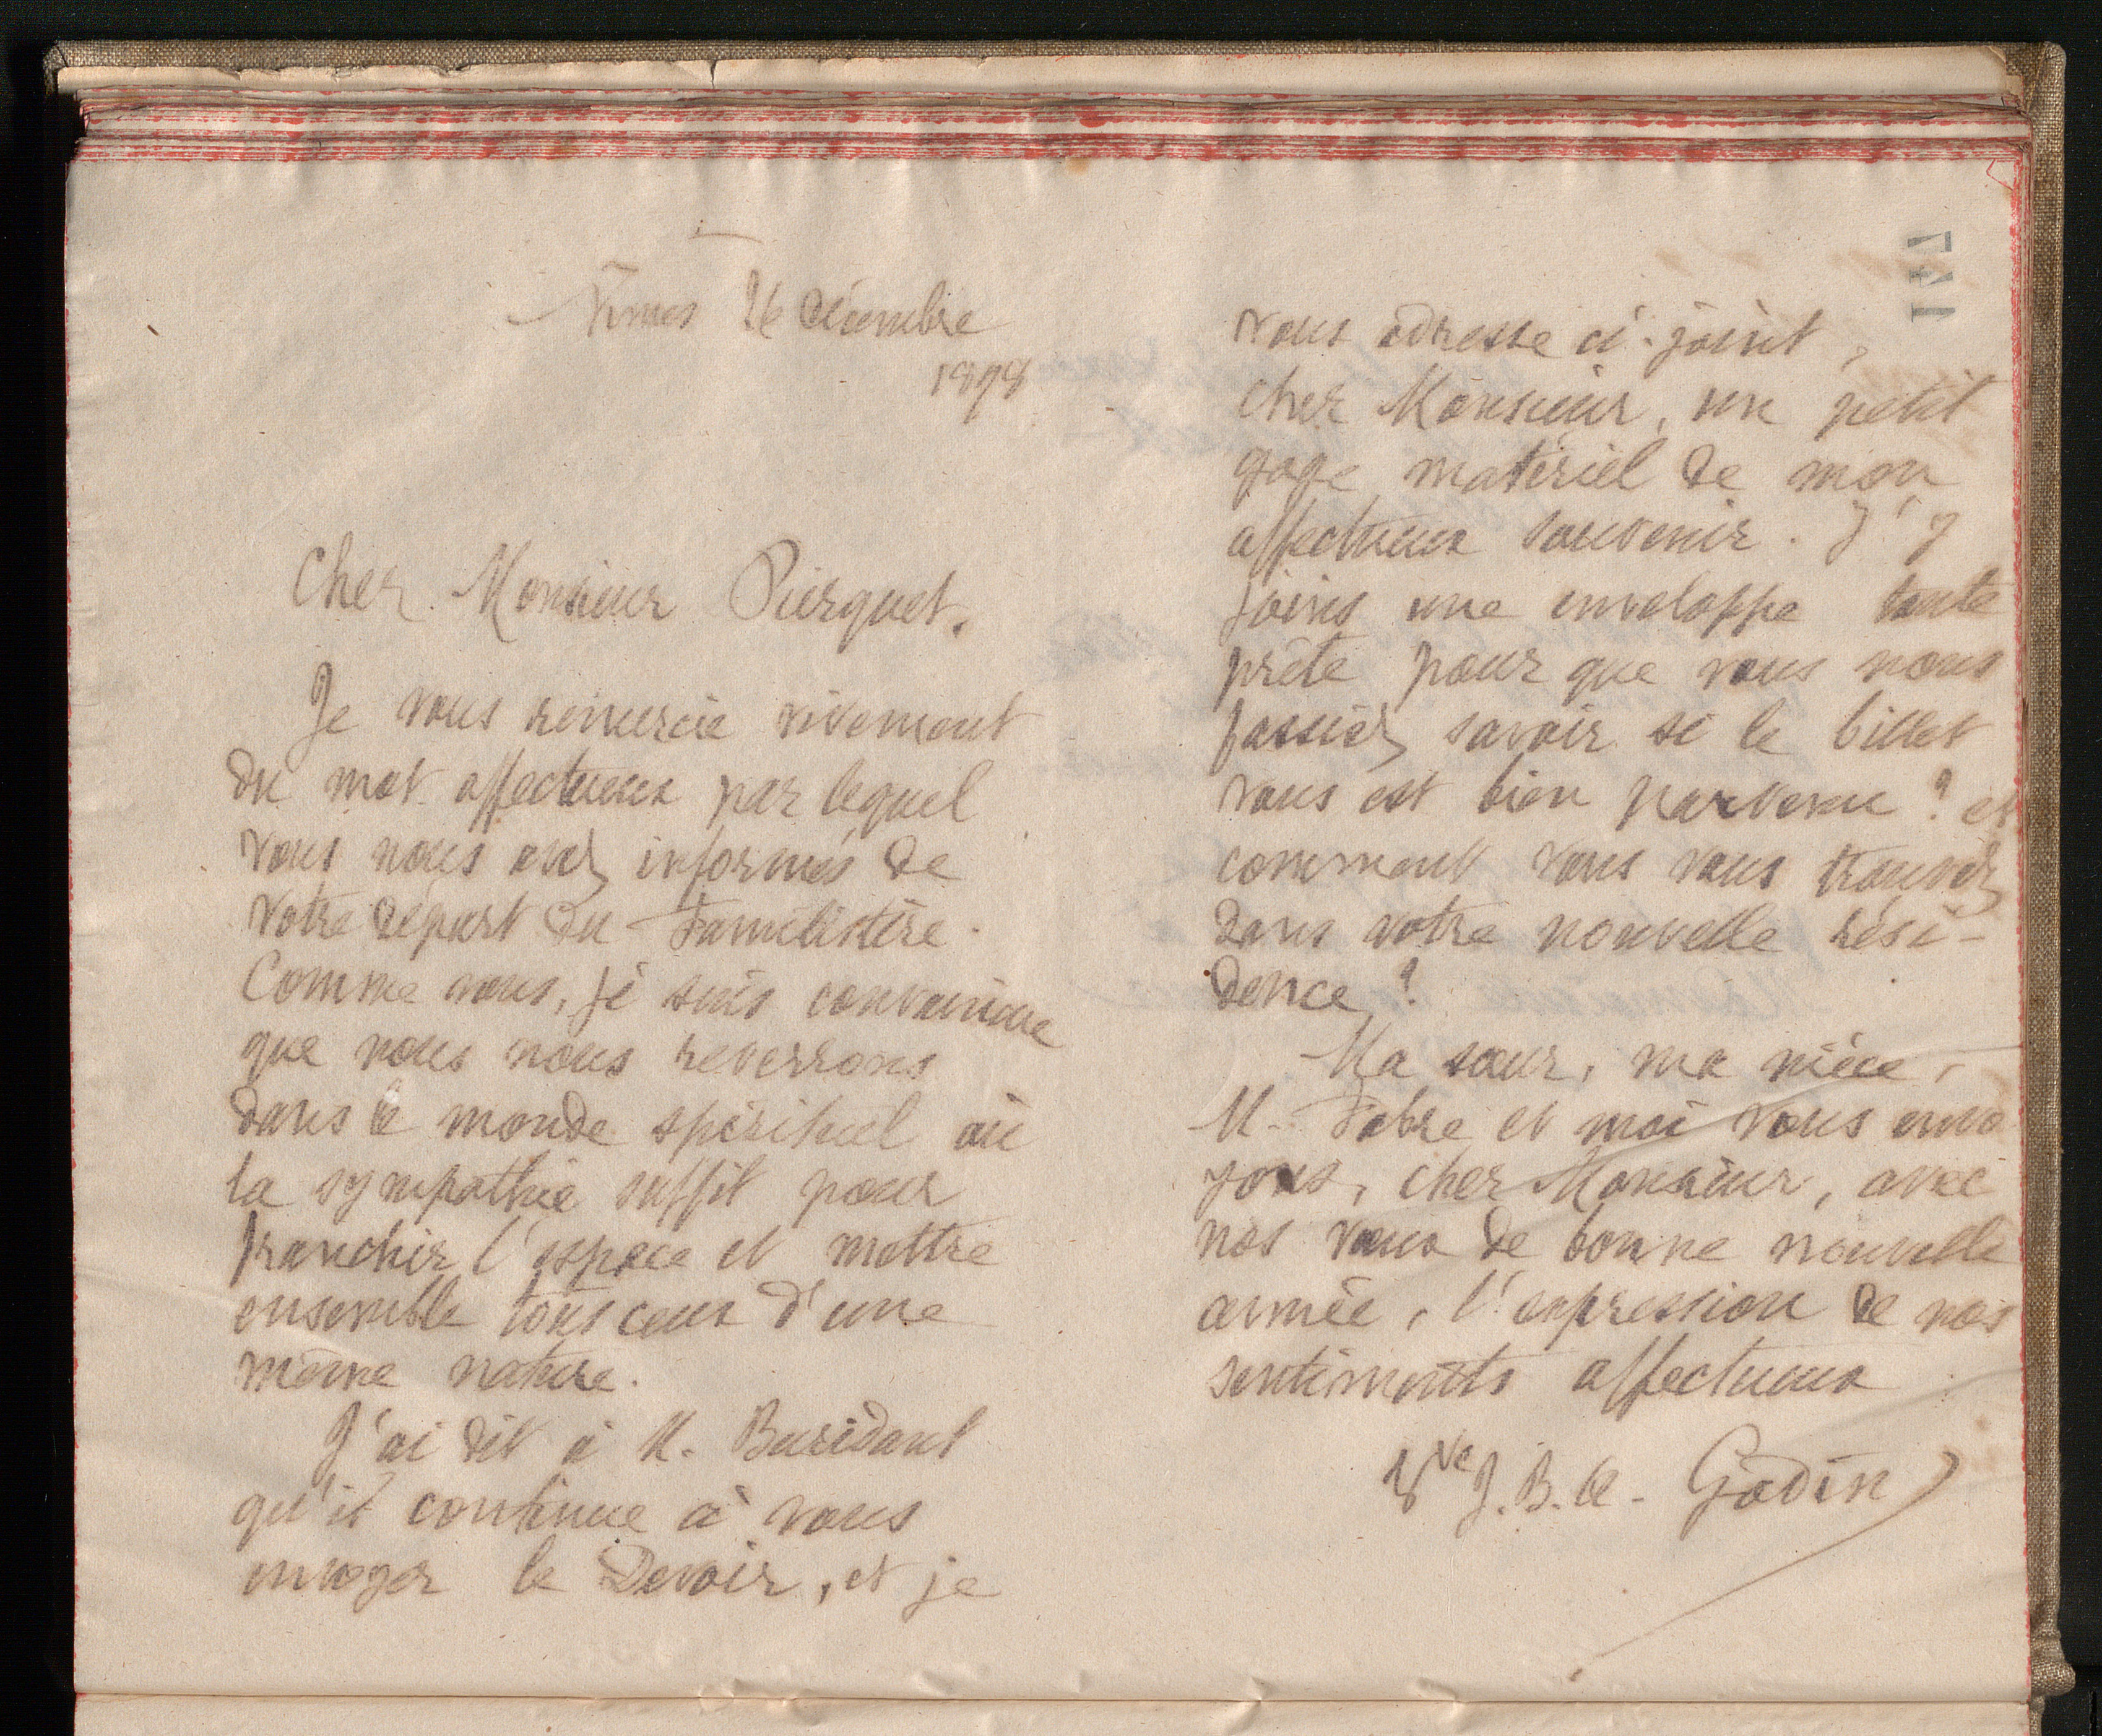 Nîmes 26 décembre
1898
Cher Monsieur Pierquet.
Je vous remercie vivement
du mot affectueux par lequel
vous nous avez informés de
votre départ du Familistère.
Comme vous, je suis convaincue
que nous nous reverrons
dans le monde spirituel où
la sympathie suffit pour
franchir l'espace et mettre
ensemble tous ceux d'une
même nature.
J'ai dit à M. Buridant
qu'il continue à vous
envoyer le Devoir, et je
vous adresse ci-joint,
cher Monsieur, un petit
gage matériel de mon
affectueux souvenir. J'y
joins une enveloppe toute
prête pour que vous nous
fassiez savoir si le billet
vous est bien parvenu ? et
comment vous vous trouvez
dans votre nouvelle rési-
dence ?
Ma sœur, ma nièce,
M. Fabre et moi vous envo
yons, cher Monsieur, avec
nos vœux de bonne nouvelle
année, l'expression de nos
sentiments affectueux
Vve J. B. A. Godin